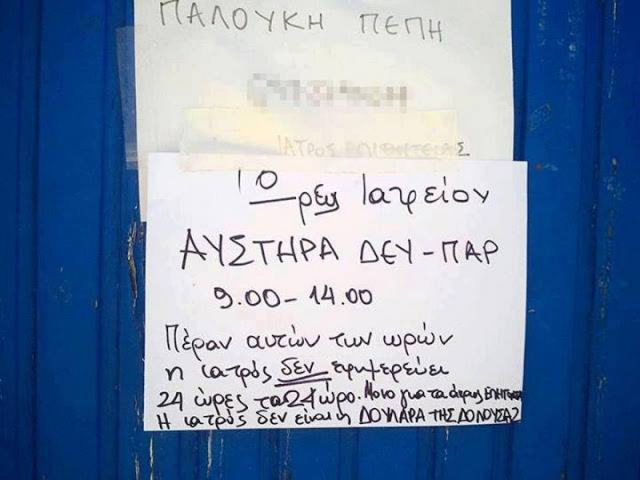 ΠΑΛΟΥΚΗ ΠΕΠΗ
ΙΑΤΡΟΣ
Ώρες Ιατρείου
ΑΥΣΤΗΡΑ ΔΕΥ-ΠΑΡ
9.00-14.00
Πέραν αυτών των ωρών
η ιατρός δεν εφημερεύει
24 ώρες το 24ωρο. Μονο για τα άκρως
Η ιατρός δεν είναι η ΔΟΥΛΑΡΑ ΤΗΣ ΔΟΝΟΥΣΑΣ